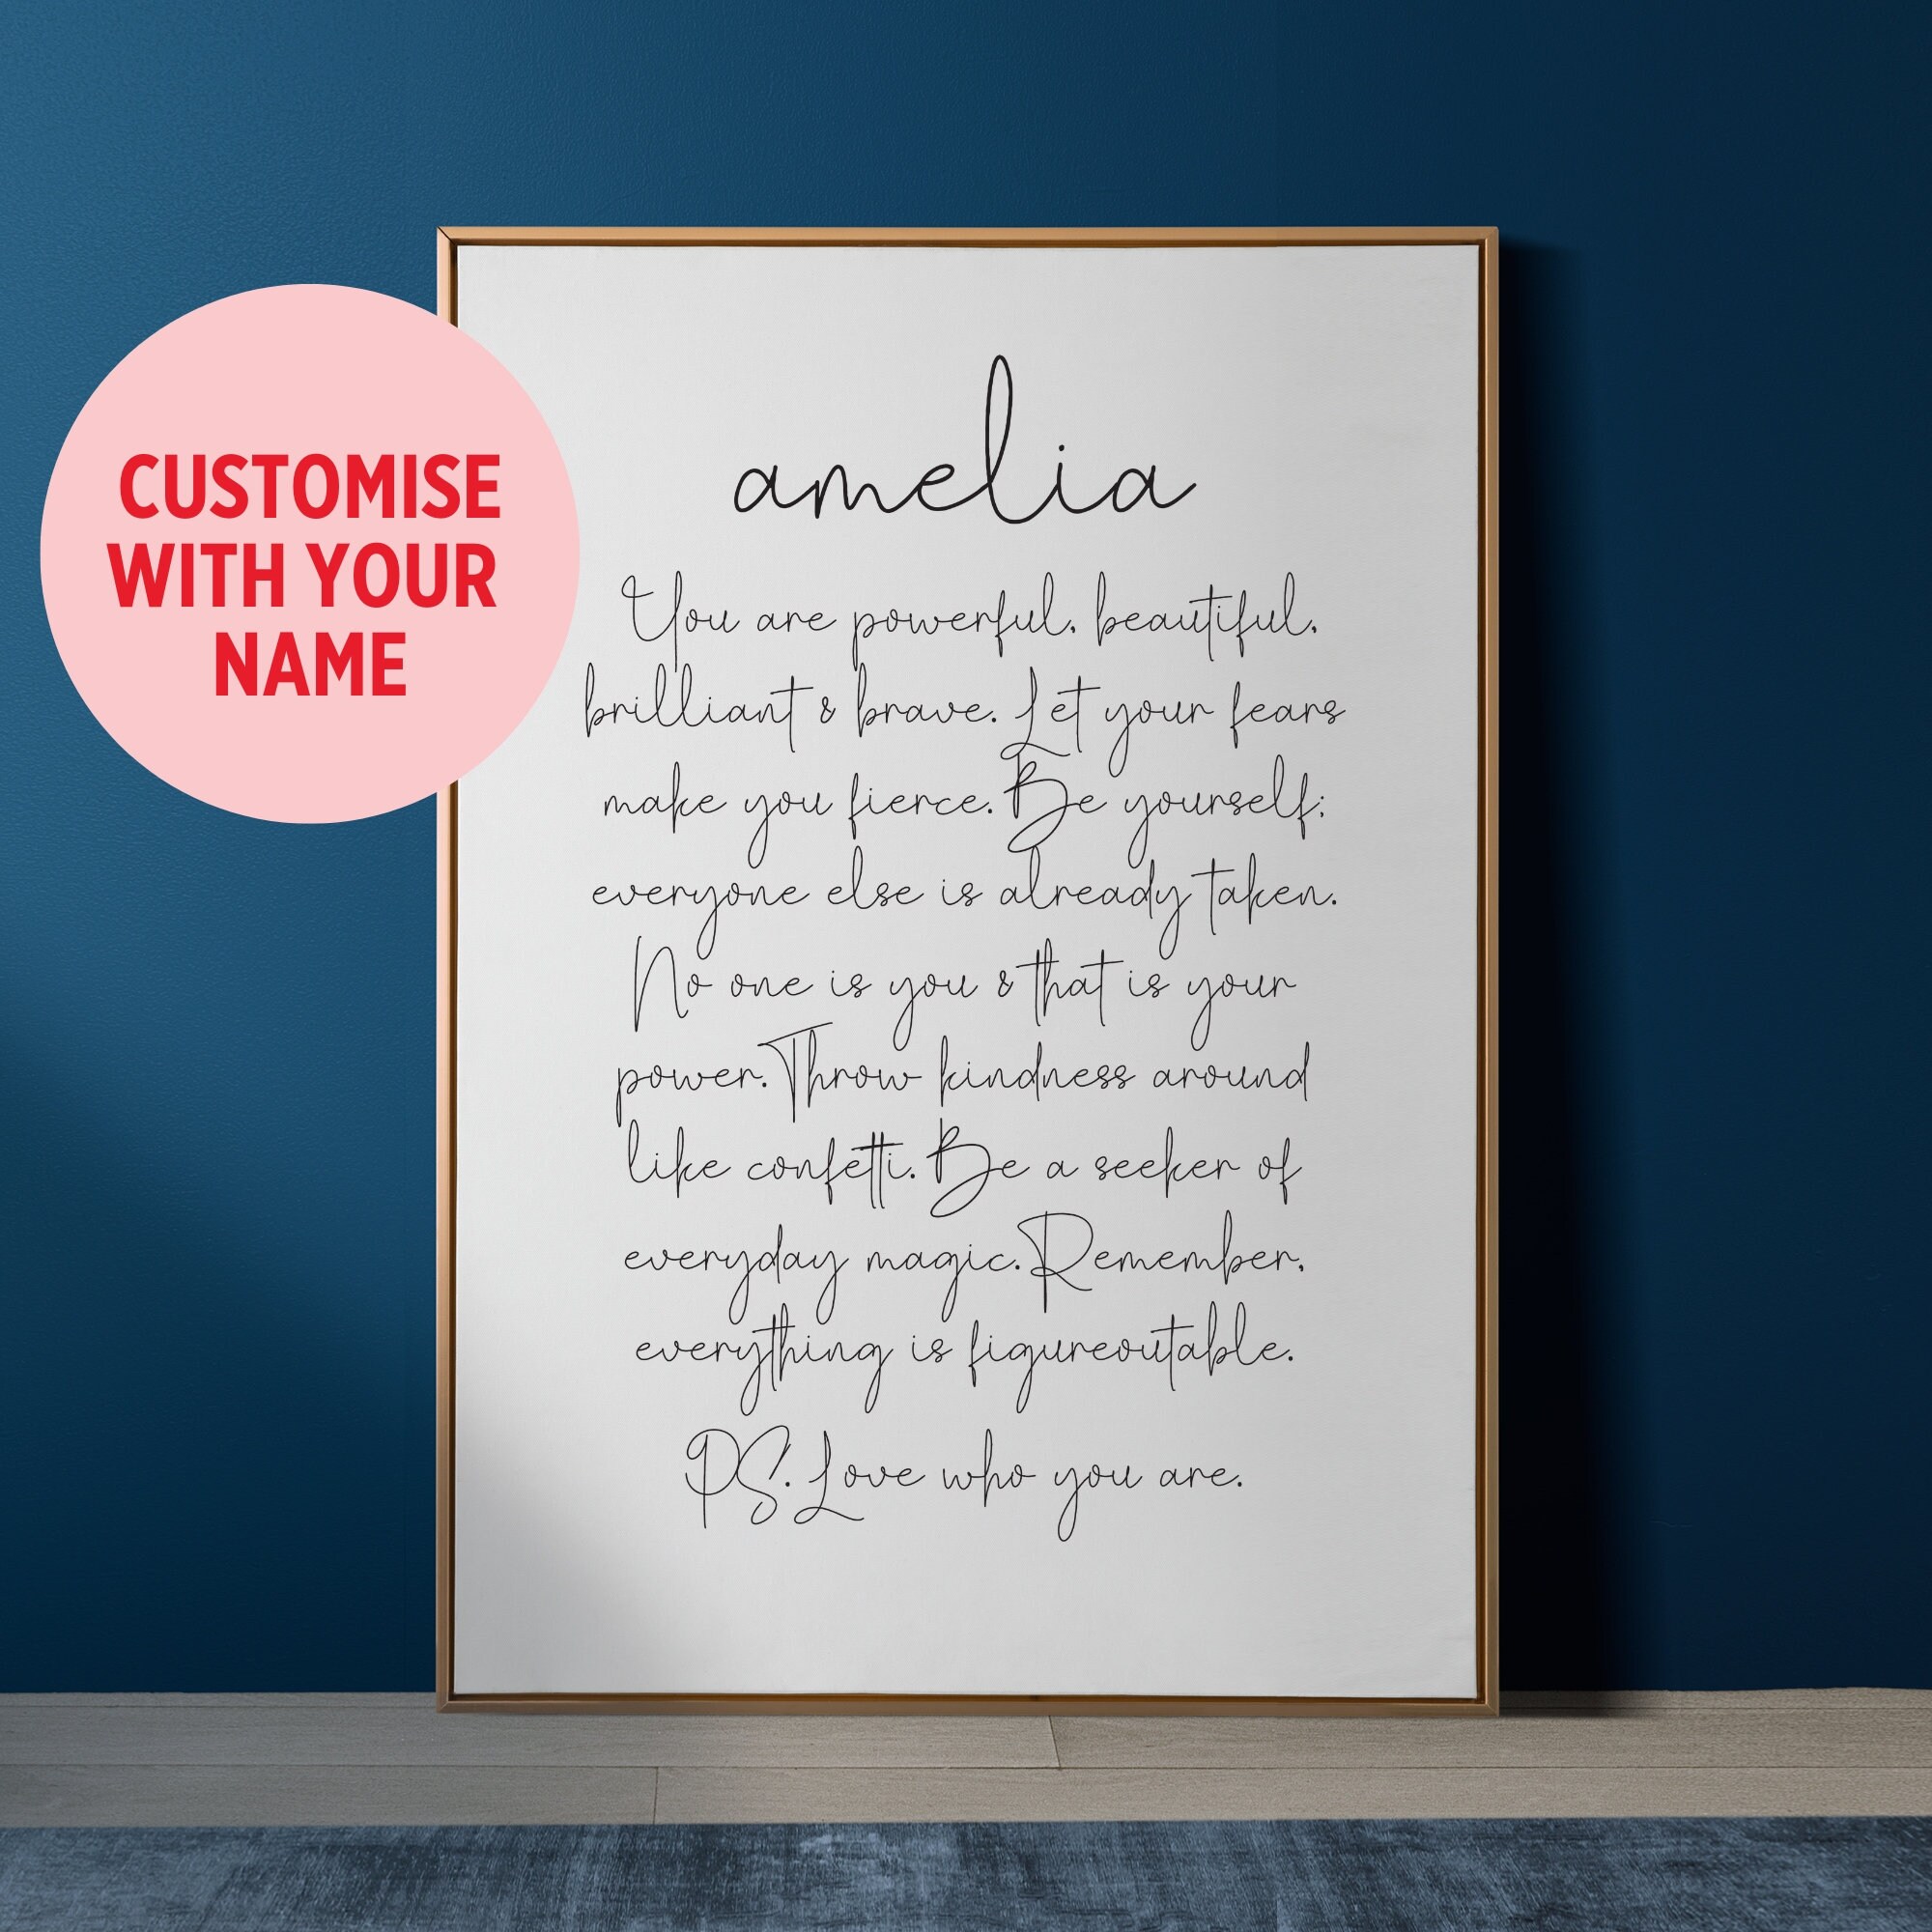 CUSTOMISE
WITH YOUR
NAME
amelia
You are powerful, beautiful,
brilliant & brave. Let your fears
make you fierce. Be yourself;
everyone else is already taken.
No one is you & that is your
power. Throw kindness around
like confetti. Be a seeker of
everyday magic. Remember,
everything is figureoutable.
PS. Love who you are.